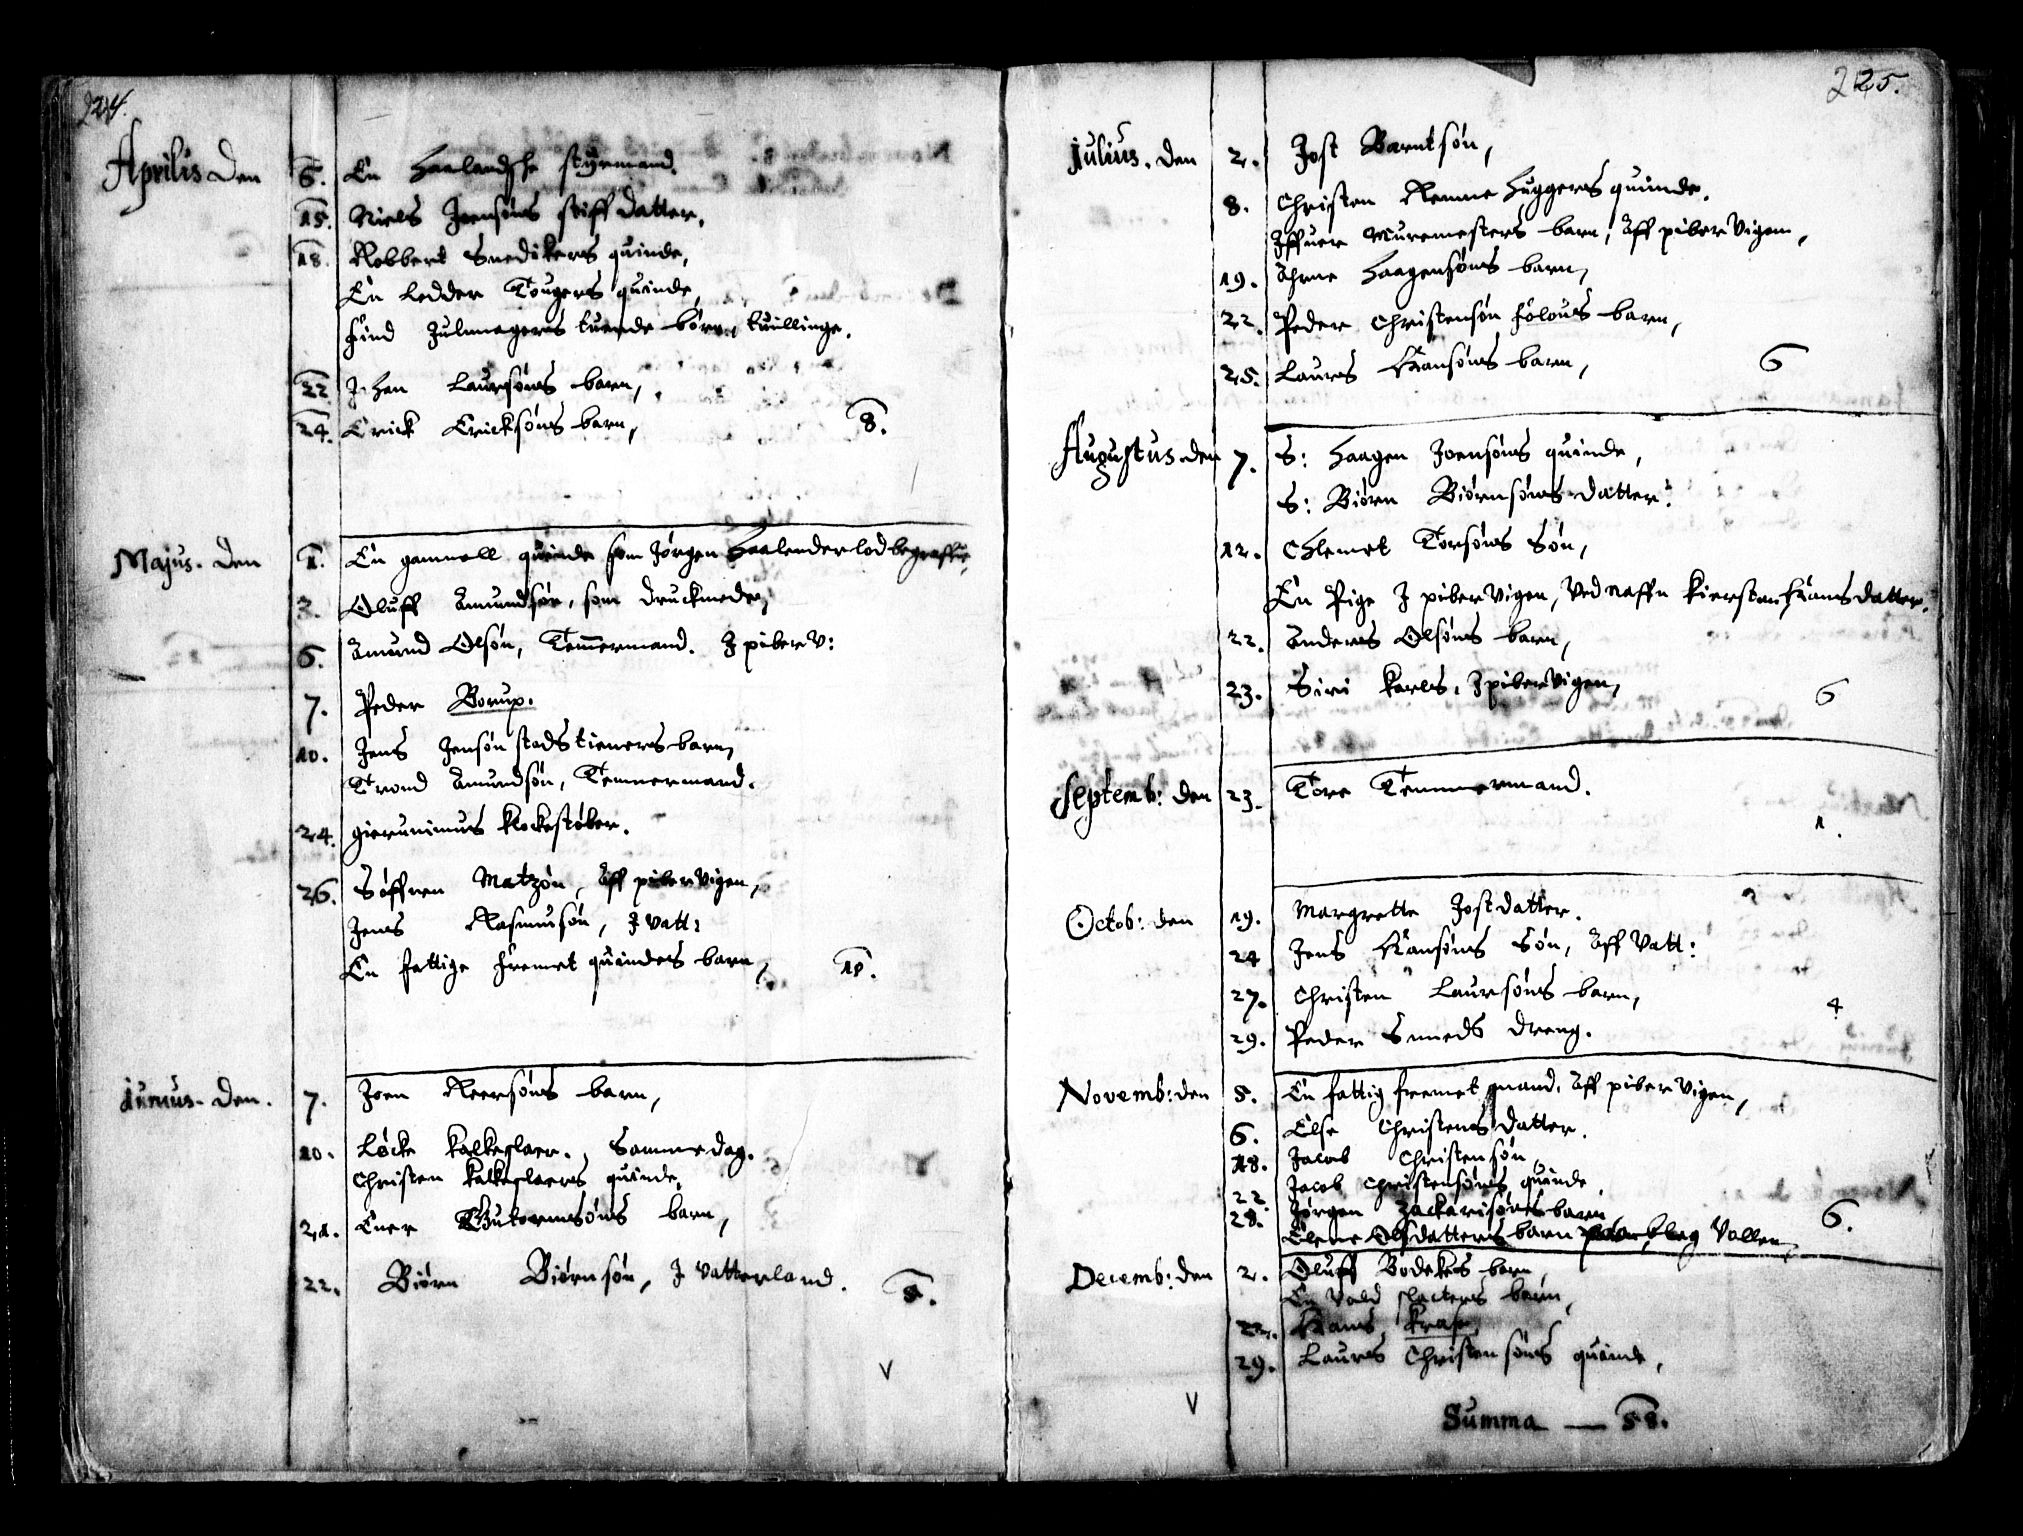 224.
Aprilis Den
6. En Haalandshe styrmand.
15. Niels Joensøns stiff datter,
18. Robbert Snedikers quinde,
En Ledder Tougers quinde,
find Julmagers tuende børn, tuillinge.
22 Johan Laursøns barn,
24. Erick Ericksøns barn, 8.
Majus. Den
1. En gammell quinde som Jørgen Haalender lod begraffue,
3. Oluff Amundsøn, som druckneder,
6. Amund Olsøn, Temmermand. J piber V:
7. Peder Borup.
10. Jens Jensøn stads tieners barn,
Trond Amundsøn, Temmermand.
24. gierunimus klockestøber.
26. Søffren Matzøn, Aff piber Vigen,
Jens Rasmusøn, J Vatt:
En fattige fremet quindes barn, 10.
Junius. Den.
7. Joen Reersøns barn,
10. Løcke kalkeslaer. Samme dag.
Christen kalkeslaers quinde,
21. Ener Gutormsøns barn,
22. Biørn Biørnsøn, J Vatterland. 5.
V
225.
Julius. Den
2. Jost Barntsøn,
8. Christen Remme Huggers quinde.
Iffuer Muremesters barn, Aff piber Vigen,
19. Ahrne Haagensøns barn,
22. Peder Christensøn folous barn,
25. Laurs Hansøns barn, 6
Augustus den
7. S: Haagen Joensøns quinde,
S: Biørn Biørnsøns datter.
12. Chlemet Torsøns Søn,
En Pige J piber Vigen, Ved naffn kierstan Hans datter.
22. Anders Olsøns barn,
23. Siri karls, J piber Vigen, 6
Septemb: den 23. Tore Temmermand.
1.
Octob: den 19. Margrette Jostdatter.
24 Jens Hansøns Søn, Aff Vatt:
27. Christen Laursøns barn,
4
29. Peder Smeds dreng.
Novemb: den 5. En fattig fremet mand, Aff piber Vigen,
6. Else Christens datter.
18. Jacob Christensøn,
22 Jacob Christensøns quinde,
28. Jørgen Zackarisøns barn
Elene Olsdatters barn Vollen, 6.
Decemb: den 2. Oluff Bodekers barn,
En Vold slacters barn,
22. Hans krase,
29. Laurs Christensøns quinde,
V
Summa — 58.